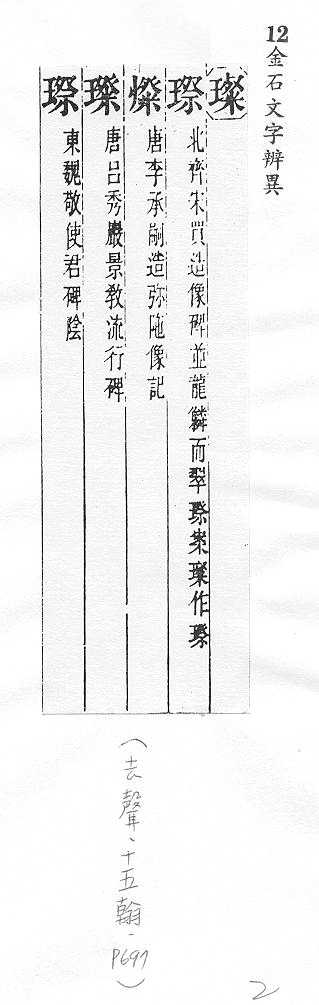 12金石文字辨異
璨
北齊宋買造像碑並龍鱗而翠璨案璨作
唐李承嗣造弥陁像記
唐呂秀巖景教流行碑
東魏敬使君碑陰
(去聲、十五翰、P697)
2